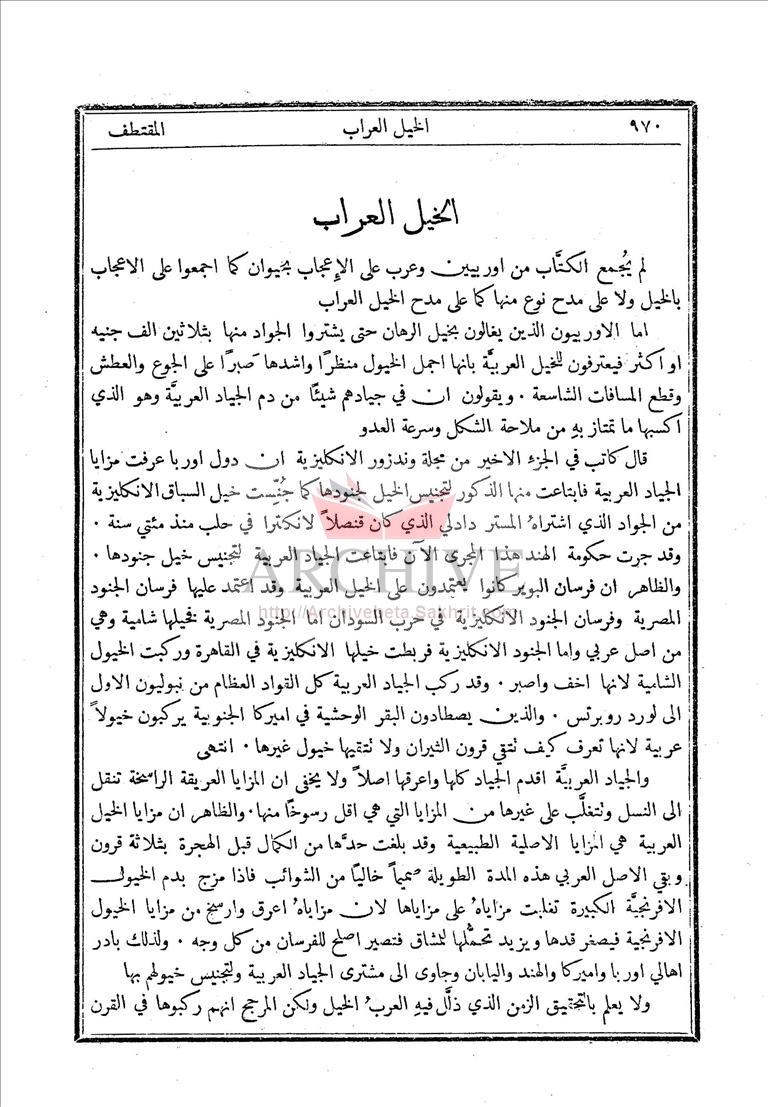 ٩٧٠ الخيل العراب المقتطف
الخيل العراب
لم يُجمع الكتَّاب من اوربيين وعرب على الإعجاب بحيوان كما اجمعوا على الاعجاب
بالخيل ولا على مدح نوع منها كما على مدح الخيل العراب
اما الاوربيون الذين يغالون بخيل الرهان حتى يشتروا الجواد منها بثلاثين الف جنيه
او اكثر فيعترفون للخيل العربيَّة بانها اجمل الخيول منظرًا واشدها صبرًا على الجوع والعطش
وقطع المسافات الشاسعة . ويقولون ان في جيادهم شيئًا من دم الجياد العربيَّة وهو الذي
اكسبها ما تمتاز بهِ من ملاحة الشكل وسرعة العدو
قال كاتب في الجزء الاخير من مجلة وندزور الانكليزية ان دول اوربا عرفت مزايا
الجياد العربية فابتاعت منها الذكور لتجنيس الخيل لجنودها كما جُنِّست خيل السباق الانكليزية
من الجواد الذي اشتراهُ المستر دادلي الذي كان قنصلاً لانكلترا في حلب منذ مئتي سنة .
وقد جرت حكومة الهند هذا المجرى الآن فابتاعت الجياد العربية لتجنيس خيل جنودها .
والظاهر ان فرسان البوير كانوا يعتمدون على الخيل العربية وقد اعتمد عليها فرسان الجنود
المصرية وفرسان الجنود الانكليزية في حرب السودان اما الجنود المصرية فخيلها شامية وهي
من اصل عربي واما الجنود الانكليزية فربطت خيلها الانكليزية في القاهرة وركبت الخيول
الشامية لانها اخف واصبر . وقد ركب الجياد العربية كل القواد العظام من نبوليون الاول
الى لورد روبرتس . والذين يصطادون البقر الوحشية في اميركا الجنوبية يركبون خيولاً
عربية لانها تعرف كيف تتقي قرون الثيران ولا تتقيها خيول غيرها . انتهى
والجياد العربيَّة اقدم الجياد كلها واعرقها اصلاً ولا يخفى ان المزايا العريقة الراسخة تنقل
الى النسل وتتغلَّب على غيرها من المزايا التي هي اقل رسوخًا منها . والظاهر ان مزايا الخيل
العربية هي المزايا الاصلية الطبيعية وقد بلغت حدَّها من الكمال قبل الهجرة بثلاثة قرون
وبقي الاصل العربي هذه المدة الطويلة صميماً خاليًا من الشوائب فاذا مزج بدم الخيول
الافرنجيَّة الكبيرة تغلبت مزاياهُ على مزاياها لان مزاياهُ اعرق وارسخ من مزايا الخيول
الافرنجية فيصغر قدها ويزيد تحمُّلها للمشاق فتصير اصلح للفرسان من كل وجه . ولذلك بادر
اهالي اوربا واميركا والهند واليابان وجاوى الى مشترى الجياد العربية ولتجنيس خيولهم بها
ولا يعلم بالتحقيق الزمن الذي ذلَّل فيهِ العربُ الخيل ولكن المرجح انهم ركبوها في القرن
ARCHIVE
http://Archivebeta.Sakhrit.com